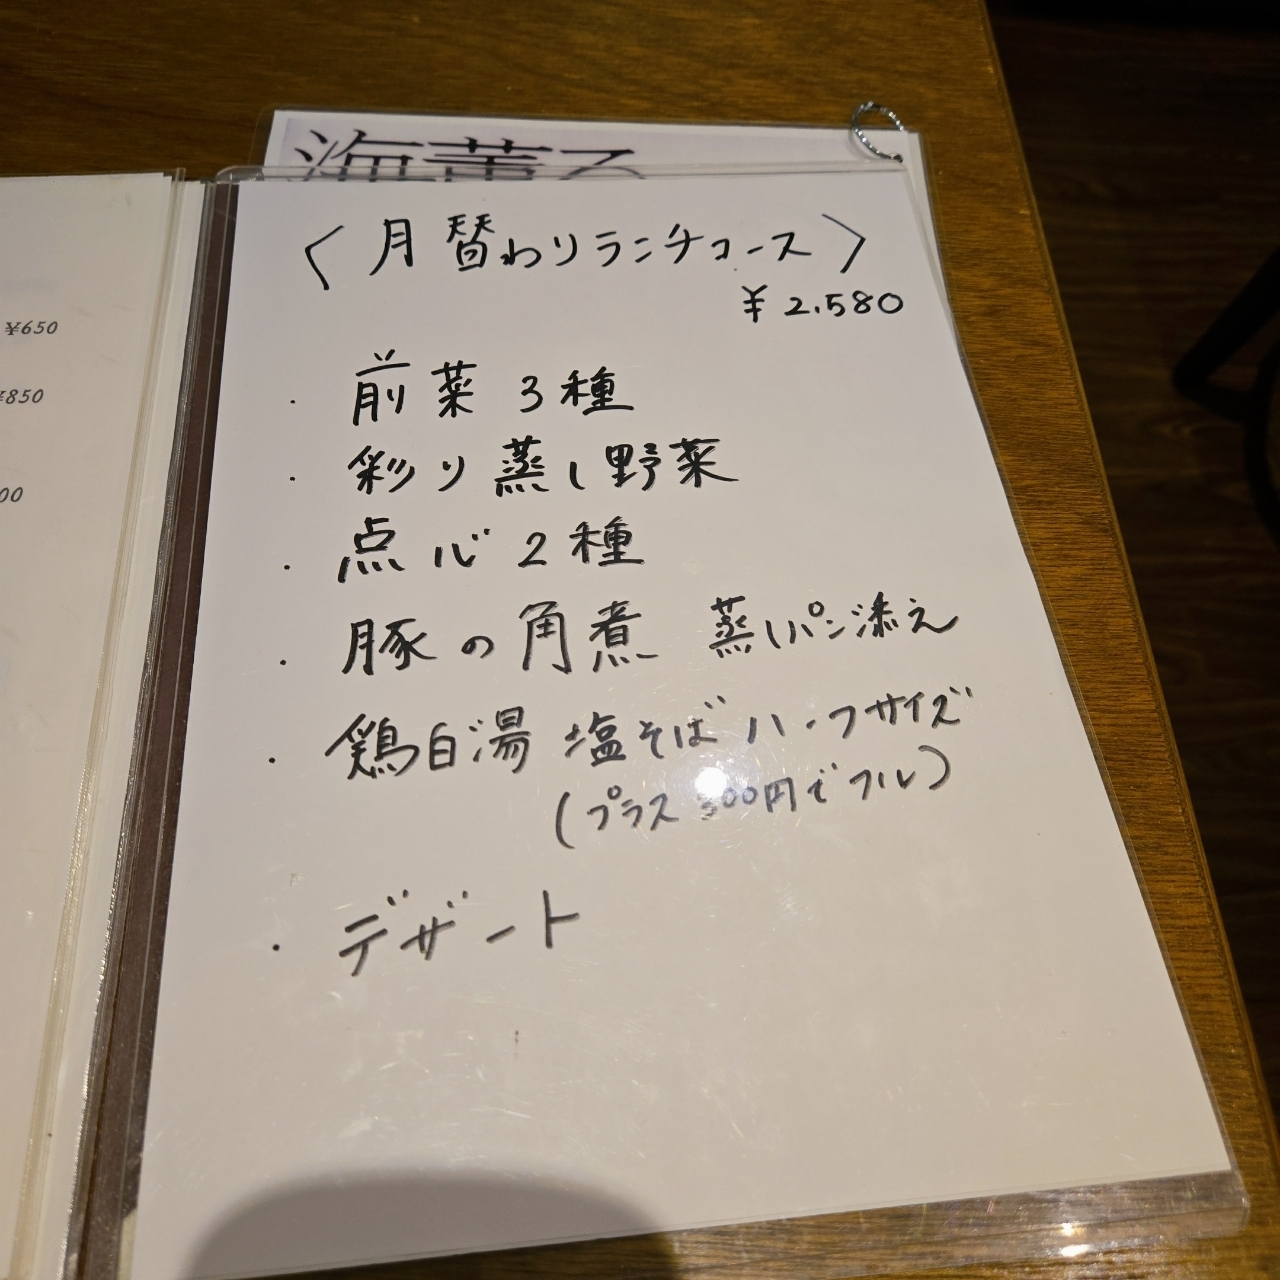 海薫る
〈月替わりランチコース〉
¥2.580
・前菜3種
・彩り蒸し野菜
・点心2種
・豚の角煮 蒸しパン添え
・鶏白湯 塩そば ハーフサイズ
(プラス300円でフル)
・デザート
¥650
¥850
00